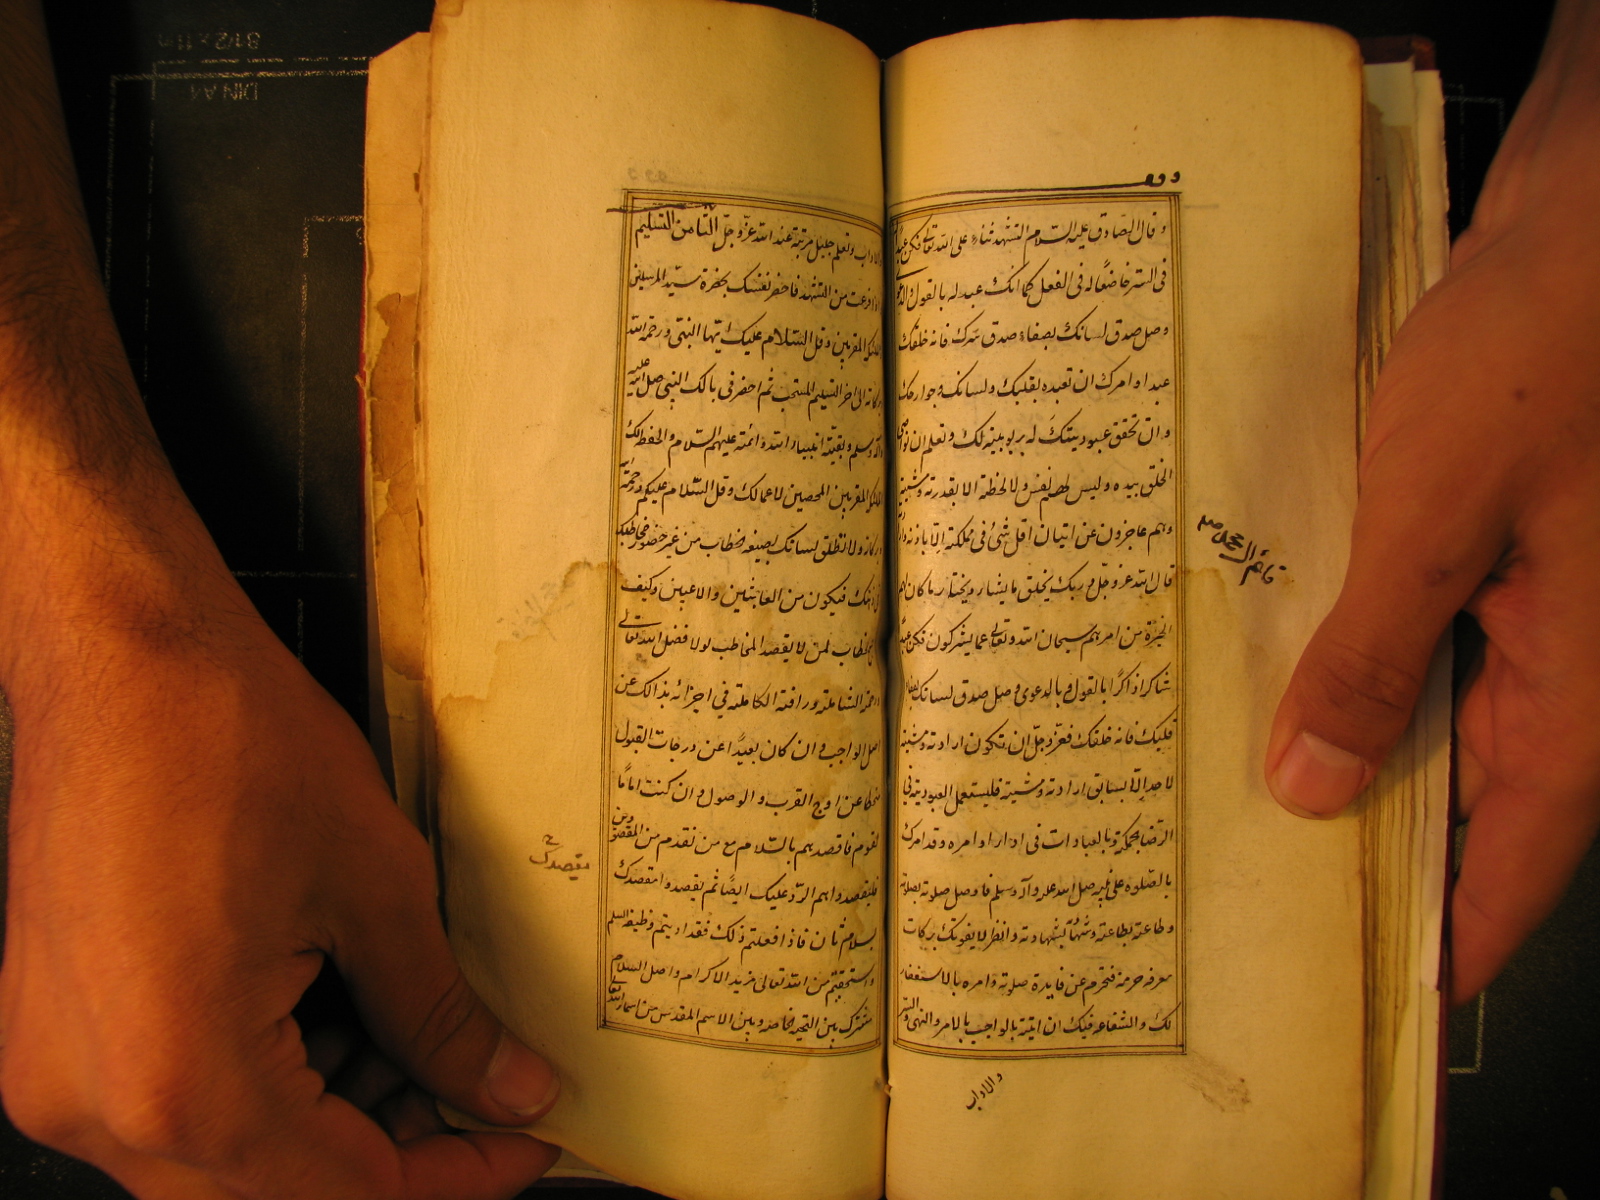 وقال الصادق عليه السلام التشهد ثناء على الله تعالى فكن عبدًا
في السر خاضعًا له في الفعل كما انك عبد له بالقول والدعوى
وصل صدق لسانك بصفاء صدق سرك فانه خلقك
عبدا وامرك ان تعبده بقلبك ولسانك وجوارحك
وان تحقق عبوديتك له بربوبيته لك وتعلم ان نواصي
الخلق بيده وليس لهم نفس ولا لحظة الا بقدرته ومشيته
وهم عاجزون عن اتيان اقل شئ في مملكته الا باذنه
قال الله عز وجل وربك يخلق ما يشاء ويختار ما كان لهم
الخيرة من امرهم سبحان الله وتعالى عما يشركون فكن عبدًا
شاكرا ذاكرًا بالقول وبالدعوى وصل صدق لسانك بصفاء
قلبك فانه خلقك فعز وجل ان تكون ارادته ومشيته
لاحد الا بسابق ارادته ومشيته فليستعمل العبودية في
الرضا بحكمه وبالعبادات في اداء اوامره وقد امرك
بالصلوة على نبيه صلى الله عليه وآله وسلم فاوصل صلوته بصلوته
وطاعته بطاعته وشهادته بشهادته وانظر لا يفوتك بركات
معرفه حرمته فتحرم عن فايدة صلوته وامره بالاستغفار
لك والشفاعه فيك ان اتيته بالواجب بالامر والنهي والسنن
والاداب
قائم آل محمد صلم
والاداب وتعلم جليل مرتبته عند الله عز وجل الثامن التسليم
اذا فرغت من التشهد فاحضر نفسك بحضرة سيد المرسلين
والملئكة المقربين وقل السلام عليك ايها النبي ورحمة الله
وبركاته الى اخر التسليم المستحب ثم احضر في بالك النبي صلى الله عليه
وآله وسلم وبقية انبياء الله وائمته عليهم السلام والحفظة لك
من الملئكة المقربين المحصين لاعمالك وقل السلام عليكم ورحمة الله
وبركاته ولا تطلق لسانك بصيغه خطاب من غير حضور مخاطب
في ذهنك فيكون من العابثين واللاعبين وكيف
يسمع الخطاب لمن لا يقصد المخاطب لولا فضل الله تعالى
ورحمته الشاملة ورافته الكاملة في اجزائه بذالك عن
اصل الواجب وان كان بعيدًا عن درجات القبول
منحطا عن اوج القرب والوصول وان كنت امامًا
لقوم فاقصدهم بالسلام مع من تقدم من المقصودين
فليقصدوا هم الرد عليك ايضًا ثم يقصدوا مقصدك
بسلام ثان فاذا فعلتم ذلك فقد اديتم وظيفة السلم
واستحقيتم من الله تعالى مزيد الاكرام واصل السلام
مشترك بين التحية خاصه وبين الاسم المقدس من اسماء الله تعالى
يقصدك